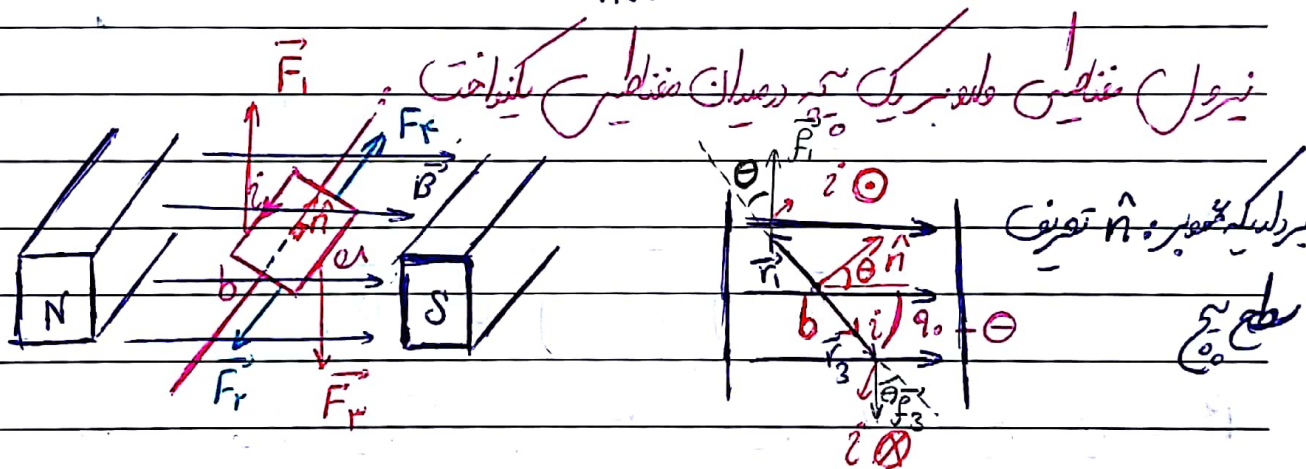 نیرول مغناطیسی وارد بر یک پیچه در میدان مغناطیسی یکنواخت
F₁ F₄ B i n̂ a b N S F₂ F₃
f₁ θ i ⊙ r₁ θ n̂ b i 90 - θ r₃ θ f₃ i ⊗
بردار یکه عمود بر: n̂ تعریف
سطح پیچه